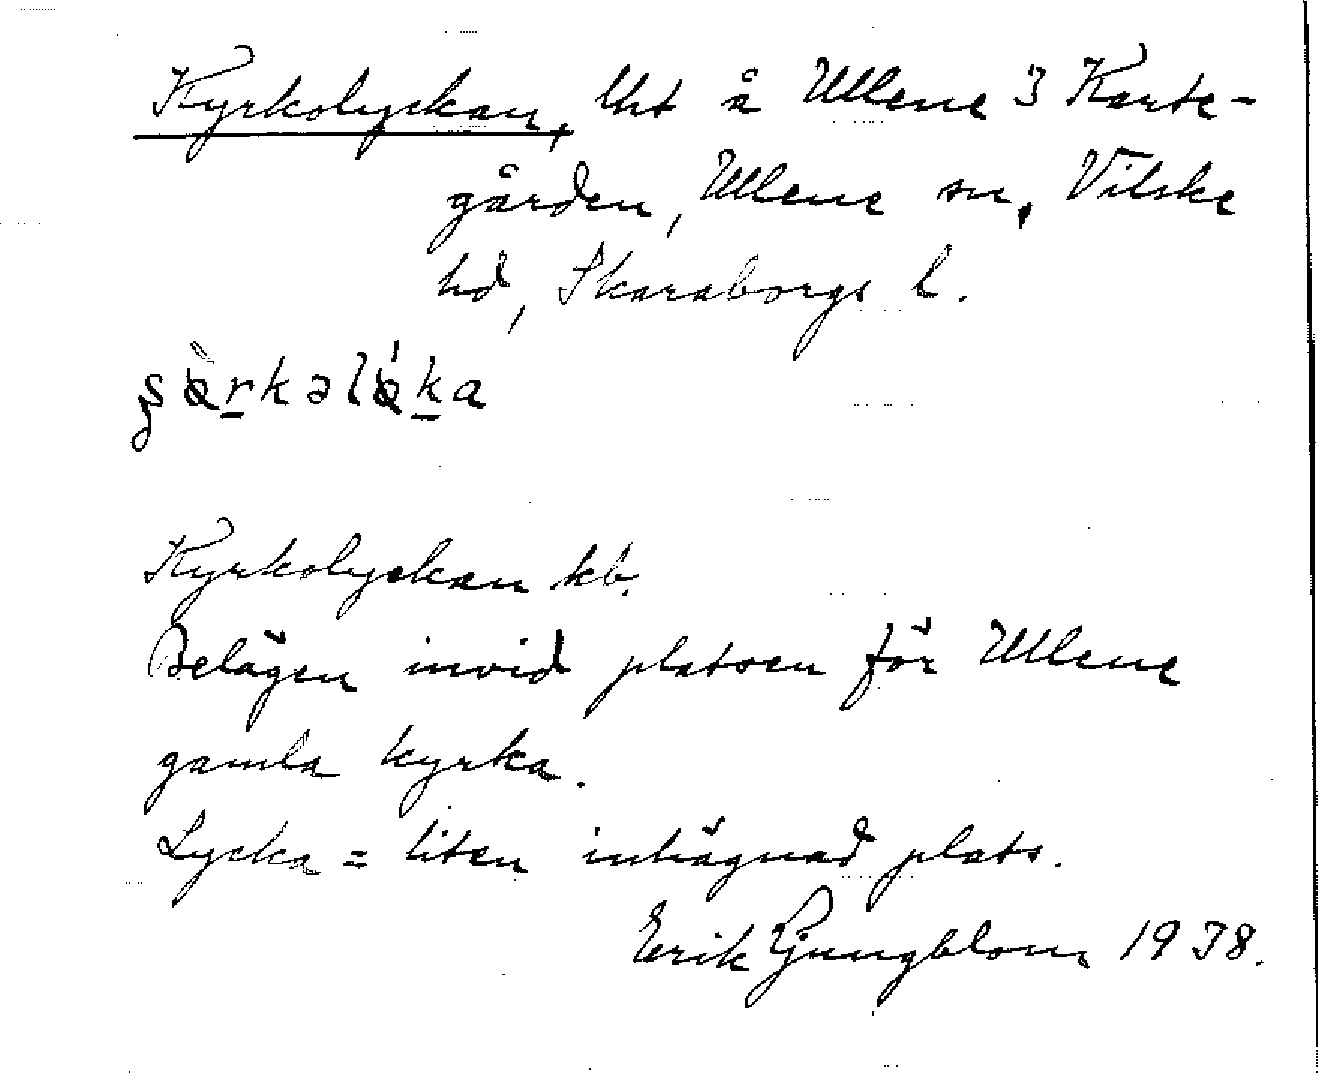 Kyrkolyckan, lht å Ullene 3 Karte-
gården, Ullene sn, Vilske
hd, Skaraborgs l.
Kyrkolyckan kb.
Belägen invid platsen för Ullene
gamla kyrka.
Lycka = liten inhägnad plats.
Erik Ljungblom 1938.